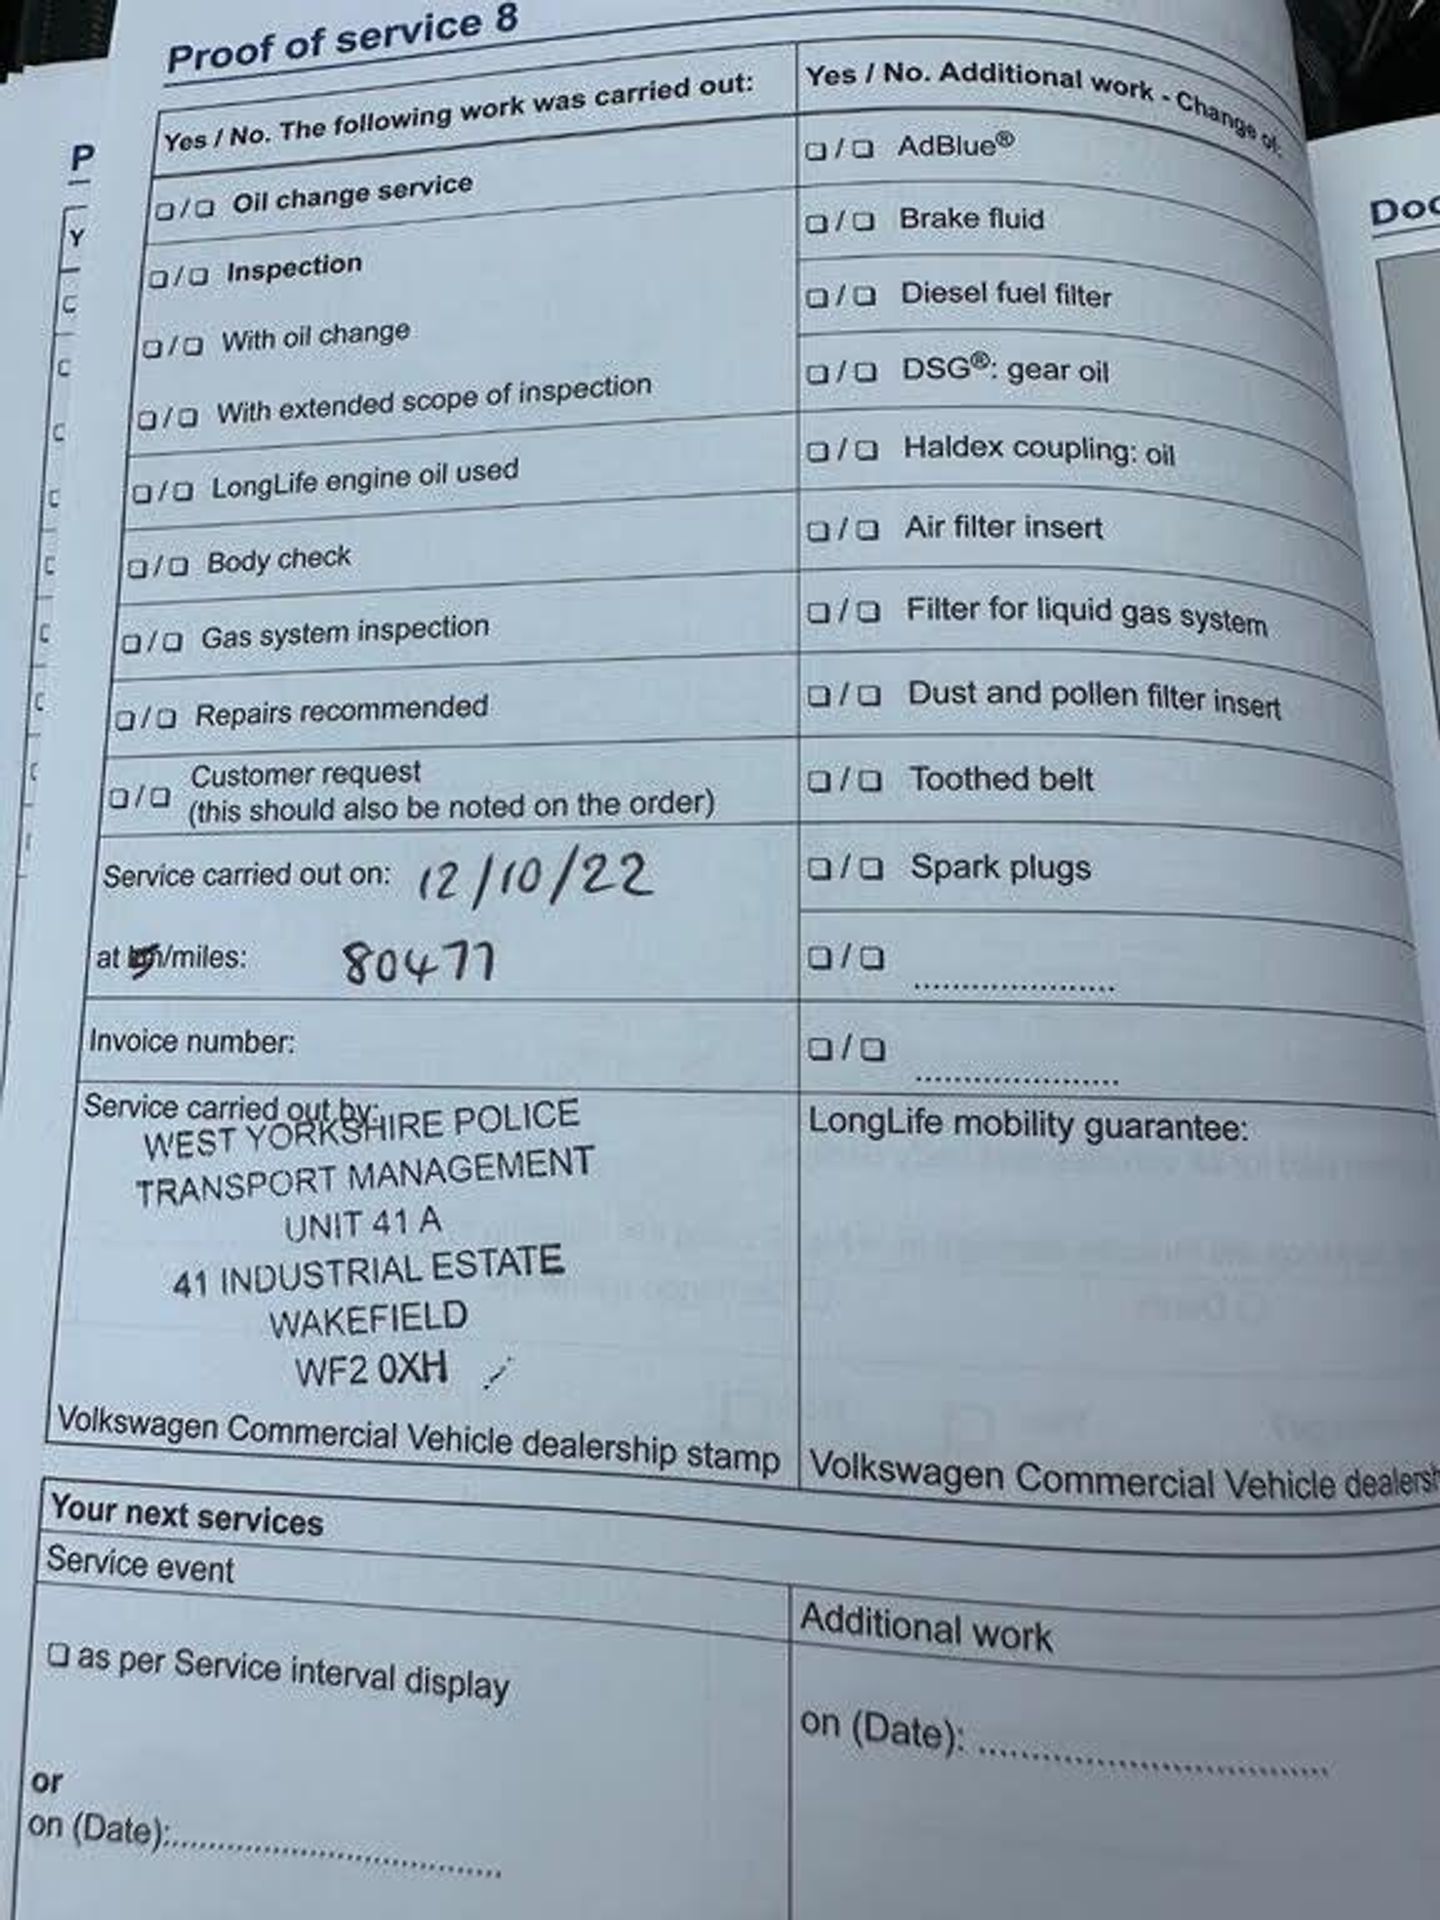 Proof of service 8
Yes / No. The following work was carried out:
❑ / ❑ Oil change service
❑ / ❑ Inspection
❑ / ❑ With oil change
❑ / ❑ With extended scope of inspection
❑ / ❑ LongLife engine oil used
❑ / ❑ Body check
❑ / ❑ Gas system inspection
❑ / ❑ Repairs recommended
❑ / ❑ Customer request
(this should also be noted on the order)
Service carried out on: 12/10/22
at km/miles: 80477
Invoice number:
Service carried out by:
WEST YORKSHIRE POLICE
TRANSPORT MANAGEMENT
UNIT 41 A
41 INDUSTRIAL ESTATE
WAKEFIELD
WF2 0XH
Volkswagen Commercial Vehicle dealership stamp
Yes / No. Additional work - Change of:
❑ / ❑ AdBlue®
❑ / ❑ Brake fluid
❑ / ❑ Diesel fuel filter
❑ / ❑ DSG®: gear oil
❑ / ❑ Haldex coupling: oil
❑ / ❑ Air filter insert
❑ / ❑ Filter for liquid gas system
❑ / ❑ Dust and pollen filter insert
❑ / ❑ Toothed belt
❑ / ❑ Spark plugs
❑ / ❑ ....................
❑ / ❑ ....................
LongLife mobility guarantee:
Volkswagen Commercial Vehicle dealersh
Your next services
Service event
❑ as per Service interval display
or
on (Date):..............................
Additional work
on (Date): ..............................
P
Y
Doc